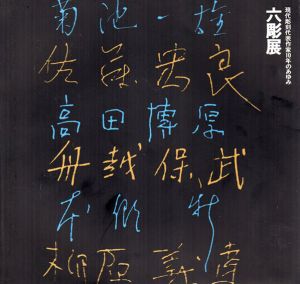 現代彫刻代表作家10年のあゆみ
六彫展
菊池一雄
佐藤忠良
高田博厚
舟越保武
本郷新
柳原義達